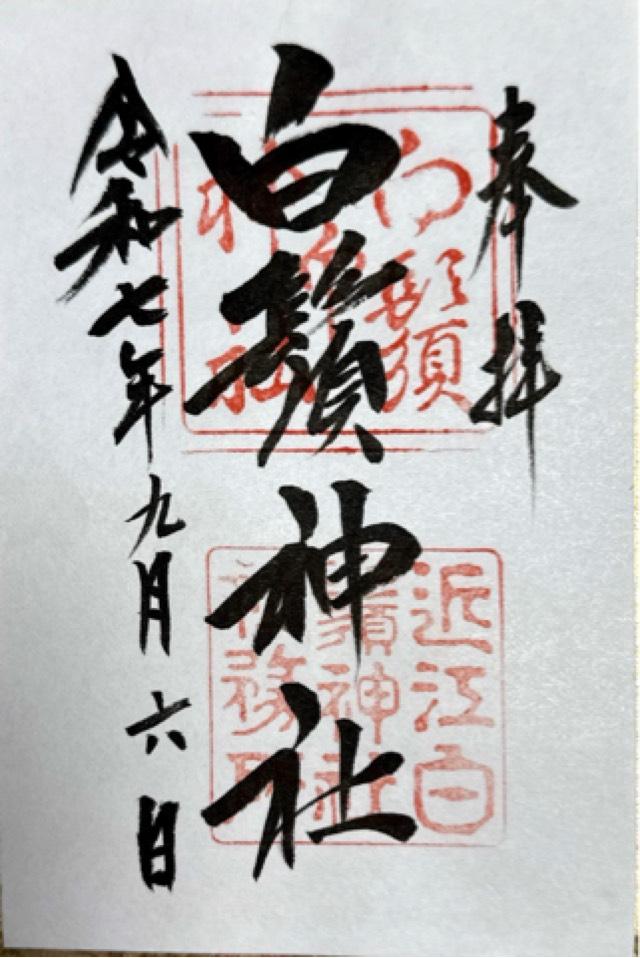 奉拝
白鬚神社
令和七年九月六日
白鬚
神社
近江白
鬚神社
社務所